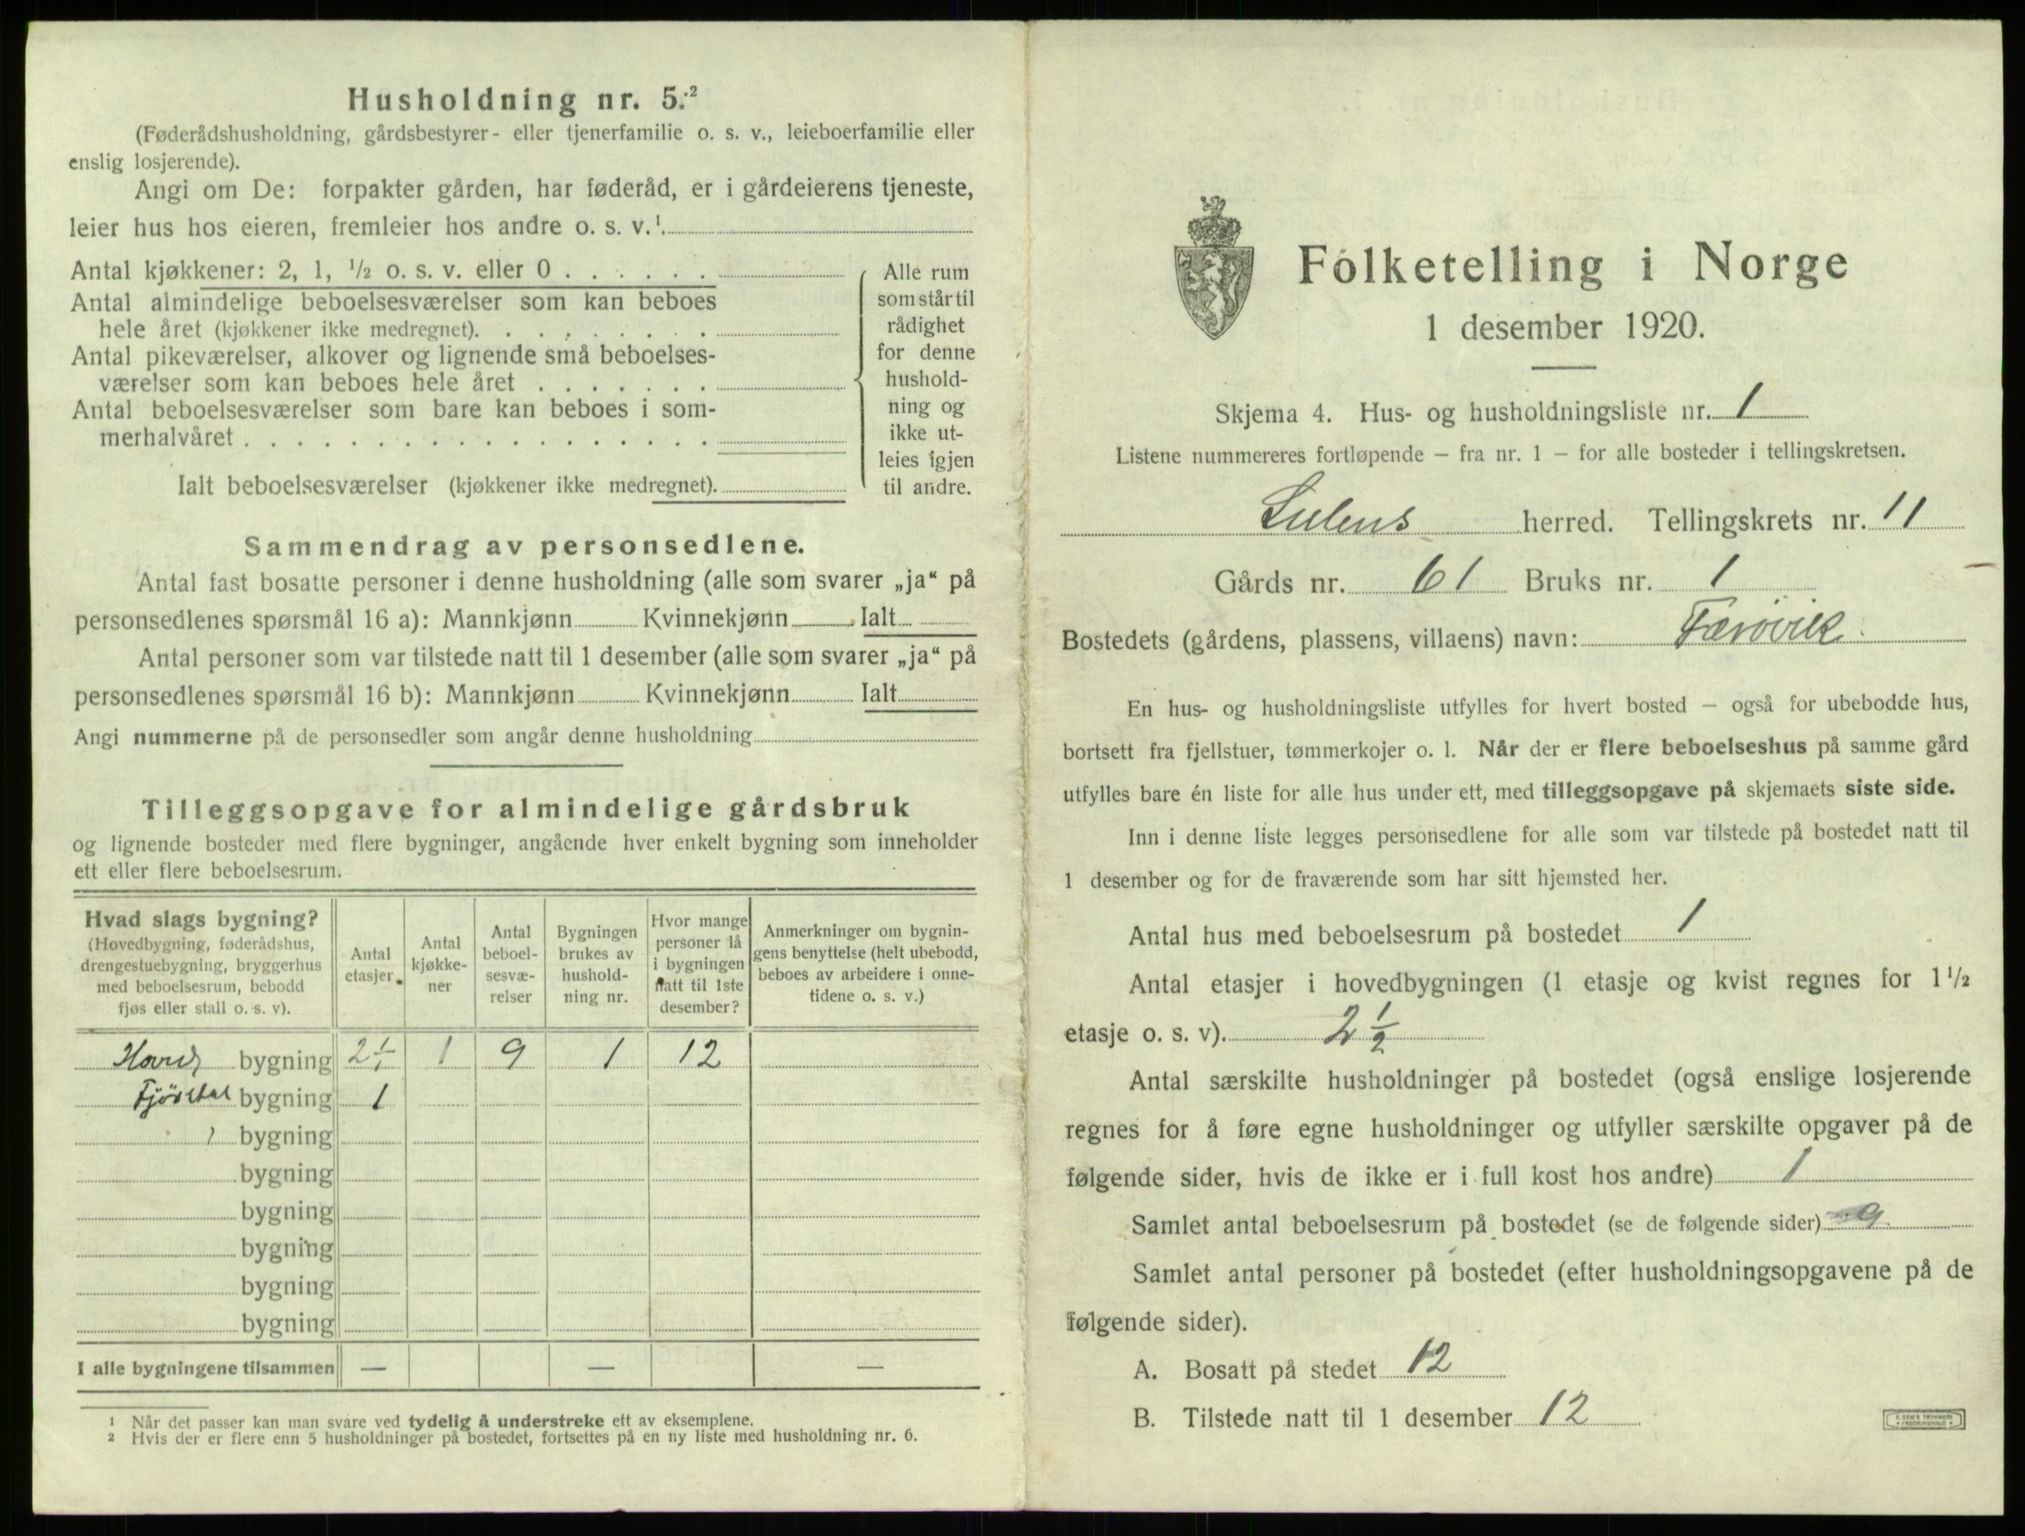 Husholdning nr. 5.²
(Føderådshusholdning, gårdsbestyrer- eller tjenerfamilie o. s. v., leieboerfamilie eller
enslig losjerende).
Angi om De: forpakter gården, har føderåd, er i gårdeierens tjeneste,
leier hus hos eieren, fremleier hos andre o. s. v.¹.
Antal kjøkkener: 2, 1, ½ o. s. v. eller 0 . . . . . .
Antal almindelige beboelsesværelser som kan beboes
hele året (kjøkkener ikke medregnet). . . . . . . . .
Antal pikeværelser, alkover og lignende små beboelses-
værelser som kan beboes hele året . . . . . . .
Antal beboelsesværelser som bare kan beboes i som-
merhalvåret . . . . . . . . . . . . . . . . . .
Ialt beboelsesværelser (kjøkkener ikke medregnet).
Alle rum
som står til
rådighet
for denne
hushold-
ning og
ikke ut-
leies igjen
til andre.
Sammendrag av personsedlene.
Antal fast bosatte personer i denne husholdning (alle som svarer „ja“ på
personsedlenes spørsmål 16 a): Mannkjønn Kvinnekjønn Ialt
Antal personer som var tilstede natt til 1 desember (alle som svarer „ja“ på
personsedlenes spørsmål 16 b): Mannkjønn Kvinnekjønn Ialt
Angi nummerne på de personsedler som angår denne husholdning
Tilleggsopgave for almindelige gårdsbruk
og lignende bosteder med flere bygninger, angående hver enkelt bygning som inneholder
ett eller flere beboelsesrum.
Hvad slags bygning?
(Hovedbygning, føderådshus,
drengestuebygning, bryggerhus
med beboelsesrum, bebodd
fjøs eller stall o. s. v).
Antal
etasjer.
Antal
kjøkke-
ner
Antal
beboel-
sesvæ-
relser
Bygningen
brukes av
hushold-
ning nr.
Hvor mange
personer lå
i bygningen
natt til 1ste
desember?
Anmerkninger om bygnin-
gens benyttelse (helt ubebodd,
beboes av arbeidere i onne-
tidene o. s. v.)
Hoved bygning 2 1/1 1 9 1 12
bygning 1
bygning
bygning
bygning
bygning
bygning
bygning
I alle bygningene tilsammen — — —
¹ Når det passer kan man svare ved tydelig å understreke ett av eksemplene.
² Hvis der er flere enn 5 husholdninger på bostedet, fortsettes på en ny liste med husholdning nr. 6.
Folketelling i Norge
1 desember 1920.
Skjema 4. Hus- og husholdningsliste nr. 1
Listene nummereres fortløpende — fra nr. 1 — for alle bosteder i tellingskretsen.
Sulens herred. Tellingskrets nr. 11
Gårds nr. 61 Bruks nr. 1
Bostedets (gårdens, plassens, villaens) navn: Færøvik
En hus- og husholdningsliste utfylles for hvert bosted — også for ubebodde hus,
bortsett fra fjellstuer, tømmerkojer o. l. Når der er flere beboelseshus på samme gård
utfylles bare én liste for alle hus under ett, med tilleggsopgave på skjemaets siste side.
Inn i denne liste legges personsedlene for alle som var tilstede på bostedet natt til
1 desember og for de fraværende som har sitt hjemsted her.
Antal hus med beboelsesrum på bostedet 1
Antal etasjer i hovedbygningen (1 etasje og kvist regnes for 1½
etasje o. s. v). 2 ½
Antal særskilte husholdninger på bostedet (også enslige losjerende
regnes for å føre egne husholdninger og utfyller særskilte opgaver på de
følgende sider, hvis de ikke er i full kost hos andre) 1
Samlet antal beboelsesrum på bostedet (se de følgende sider) 9
Samlet antal personer på bostedet (efter husholdningsopgavene på de
følgende sider).
A. Bosatt på stedet 12
B. Tilstede natt til 1 desember 12